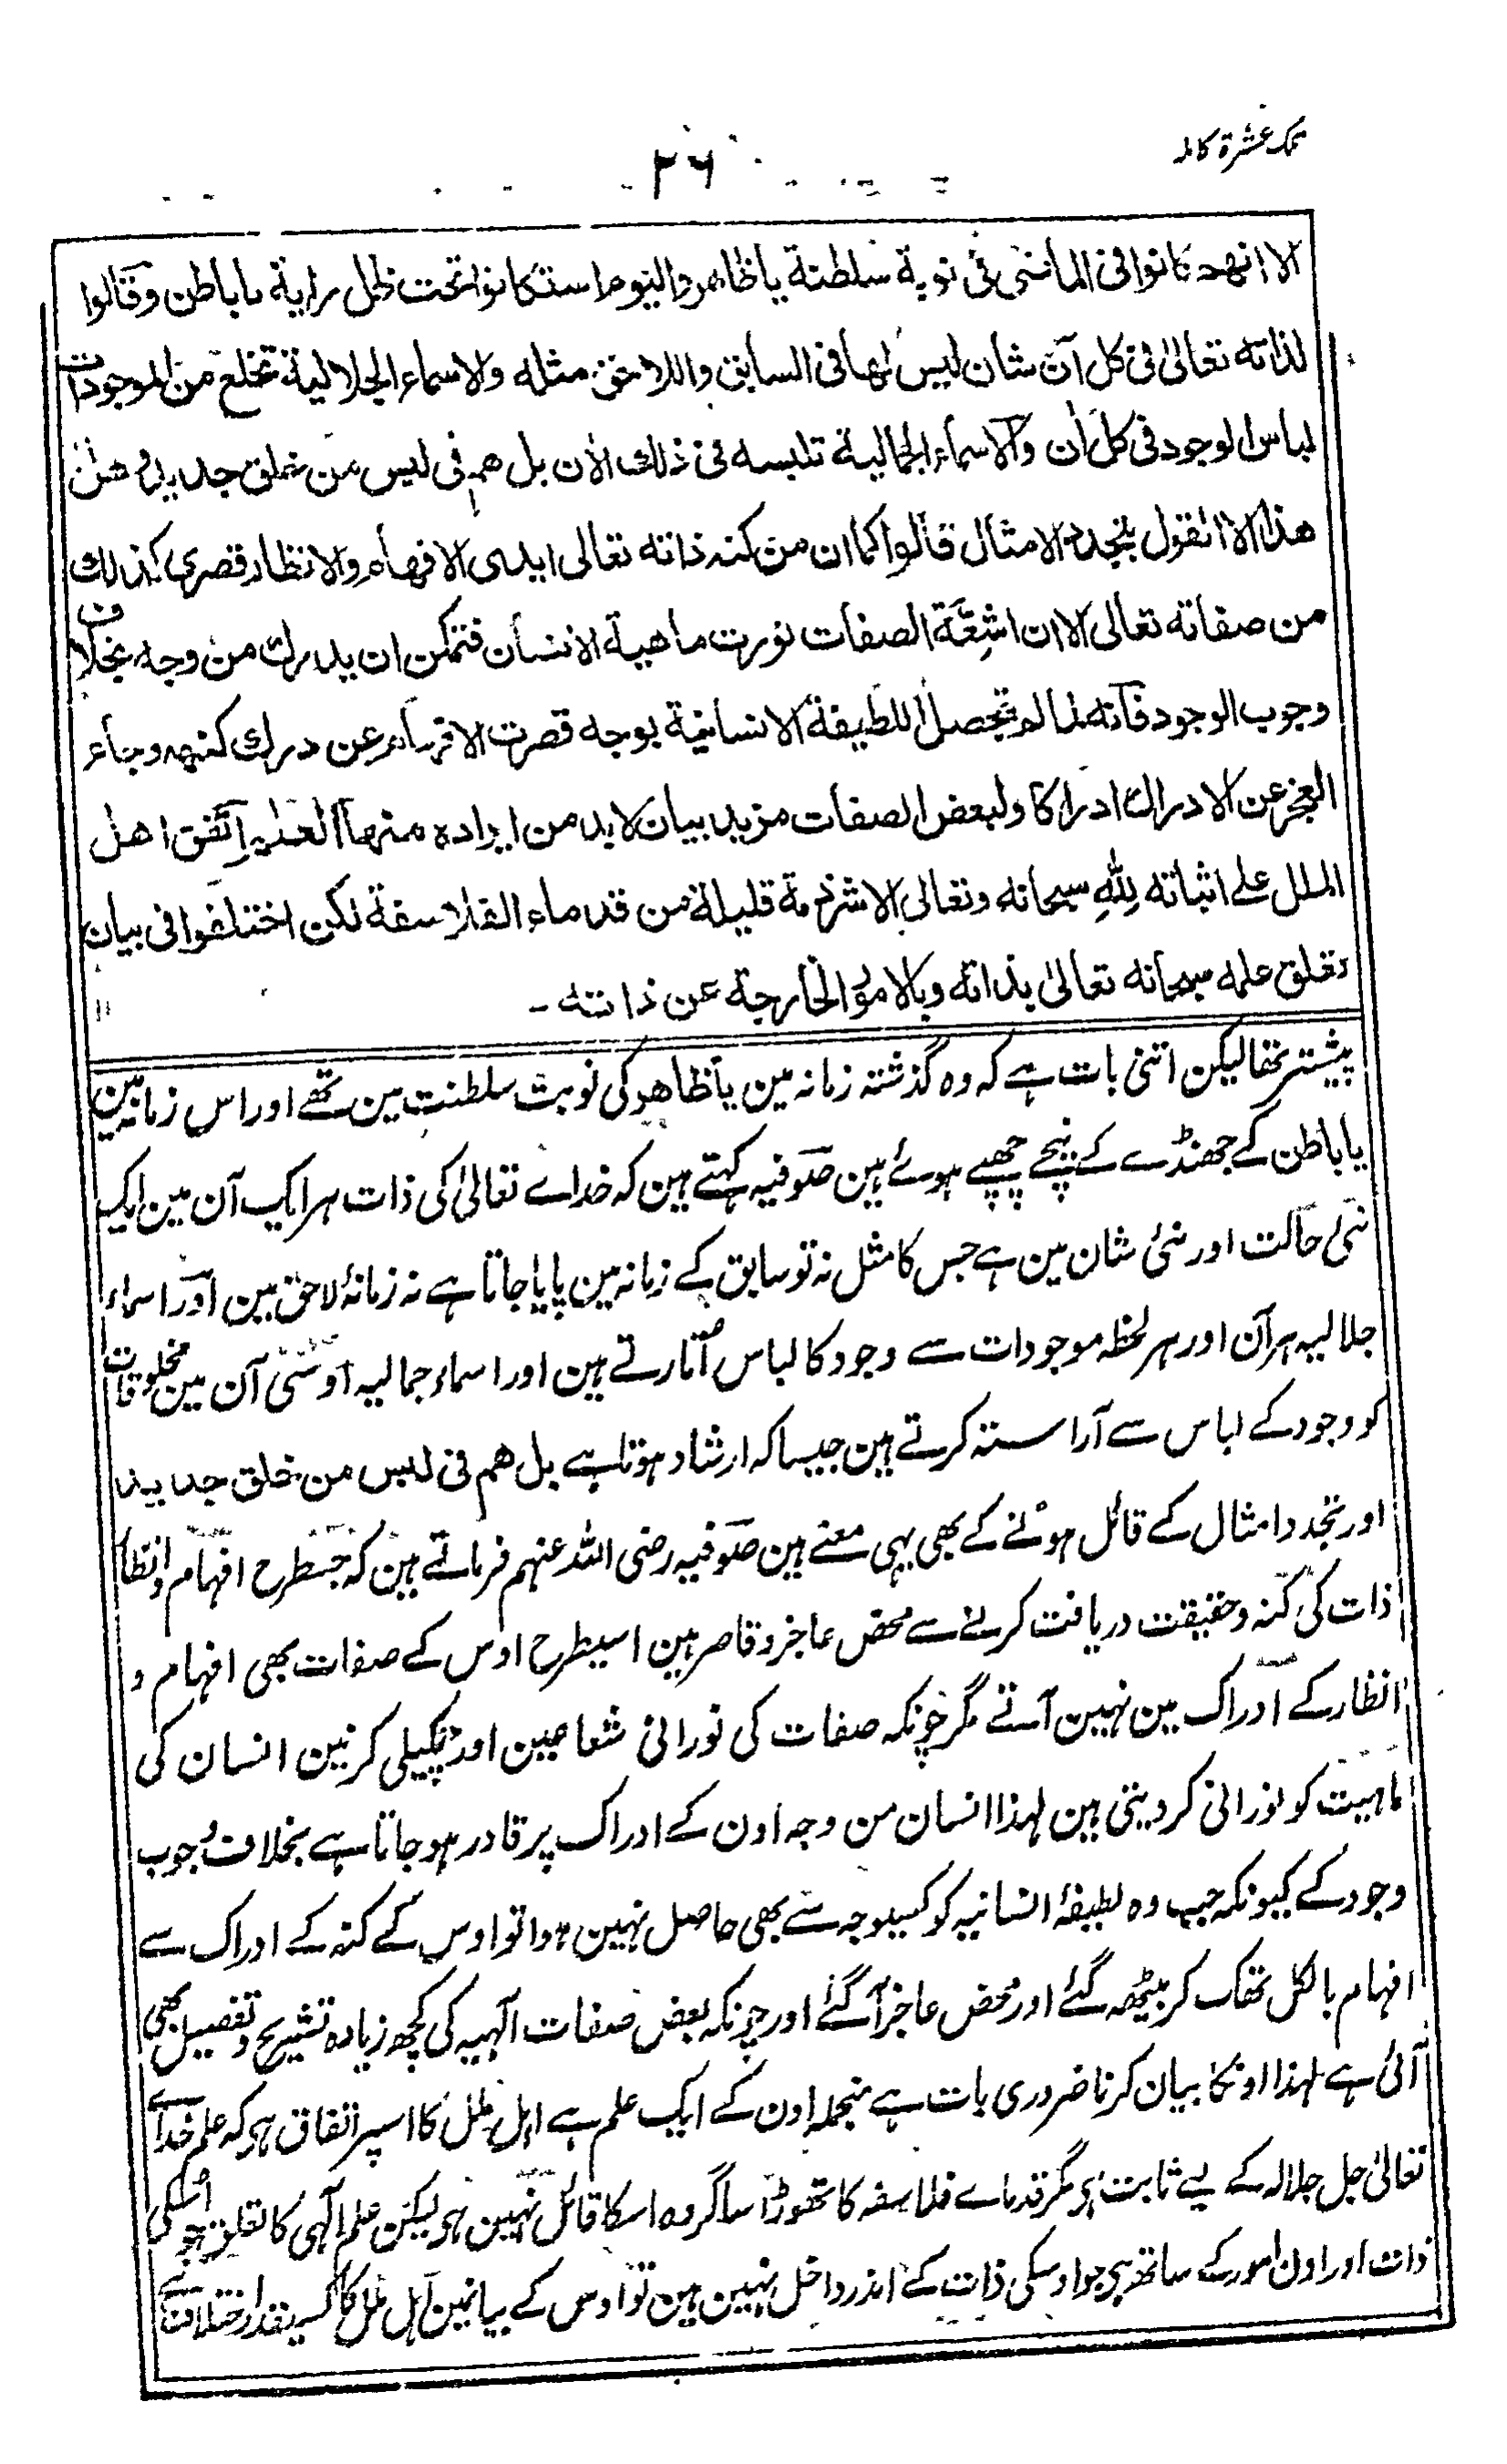 تلک عشرة کاملة
۲۶
الا انهم كانوا فى الماضى فى نوبة سلطنة يا ظاهر واليوم استكانوا تحت ظل راية يا باطن وقالوا
لذاته تعالىٰ فى كل آن شان ليس لها فى السابق واللاحق مثله والاسماء الجلالية تخلع من الموجودات
لباس الوجود فى كل اٰن والاسماء الجمالية تلبسه فى ذلك الاٰن بل هم فى لبس من خلق جديد وهل
هذا الا القول بتجدد الامثال قالوا كما ان من كنه ذاته تعالى ايدى الافهام والانظار قصرى كذلك
من صفاته تعالى الا ان اشعّة الصفات نورت ماهية الانسان فتمكن ان يدرك من وجه بخلاف
وجوب الوجود فانه لما لم تحصل للطيفة الانسانية بوجه قصرت الافهام عن درك كنهه وجاء
العجز عن الادراك ادراكا ولبعض الصفات مزيد بيان لابد من ايراده منها العلم اتفق اهل
الملل على اثباته للهِ سبحانه وتعالى الا شرذمة قليلة من قدماء الفلاسفة لكن اختلفوا فى بيان
تعلق علمه سبحانه تعالىٰ بذاته وبالامور الخارجة عن ذاته ـ
پیشتر تھا لیکن اتنی بات ہے کہ وہ گذشتہ زمانہ مین یا ظاھر کی نوبت سلطنت مین تھے اور اس زمانہ مین
یا باطن کے جھنڈے کے نیچے چھپے ہوئے ہین صوفیہ کہتے ہین کہ خداے تعالیٰ کی ذات ہر ایک آن مین ایک
نئی حالت اور نئی شان مین ہے جس کا مثل نہ تو سابق کے زمانہ مین پایا جاتا ہے نہ زمانۂ لاحق مین اور اسماء
جلالیہ ہر آن اور ہر لحظہ موجودات سے وجود کا لباس اُتارتے ہین اور اسماء جمالیہ اوسی آن مین مخلوقات
کو وجود کے لباس سے آراستہ کرتے ہین جیسا کہ ارشاد ہوتا ہے بل هم فى لبس من خلق جديد
اور تجدد امثال کے قائل ہونے کے بھی یہی معنے ہین صوفیہ رضی اللہ عنہم فرماتے ہین کہ جسطرح افہام و انظار
ذات کی کنہ و حقیقت دریافت کرنے سے محض عاجز و قاصر ہین اسیطرح اوس کے صفات بھی افہام و
انظار کے ادراک مین نہین آتے مگر چونکہ صفات کی نورانی شعاعین اور چمکیلی کرنین انسان کی
ماہیت کو نورانی کر دیتی ہین لہذا انسان من وجہ اون کے ادراک پر قادر ہو جاتا ہے بخلاف وجوب
وجود کے کیونکہ جب وہ لطیفۂ انسانیہ کو کسیوجہ سے بھی حاصل نہین ہوا تو اوس کے کنہ کے ادراک سے
افہام بالکل تھک کر بیٹھہ گئے اور محض عاجز آ گئے اور چونکہ بعض صفات آلہیہ کی کچھ زیادہ تشریح و تفصیل بھی
آئی ہے لہذا اونکا بیان کرنا ضروری بات ہے منجملہ اون کے ایک علم ہے اہل ملل کا اسپر اتفاق ہی کہ علم خداے
تعالیٰ جل جلالہ کے لیے ثابت ہی مگر قدماے فلاسفہ کا تھوڑا سا گروہ اسکا قائل نہین ہی لیکن علم آلہی کا تعلق جو اُسکی
ذات اور اون امور کے ساتھ ہی جو اوسکی ذات کے اندر داخل نہین ہین تو اوس کے بیانمین اہل ملل کا کسیقدر اختلاف ہے